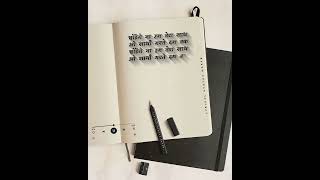 छोड़ेंगे ना हम तेरा साथ
ओ साथी मरते दम तक
छोड़ेंगे ना हम तेरा साथ
ओ साथी मरते दम त